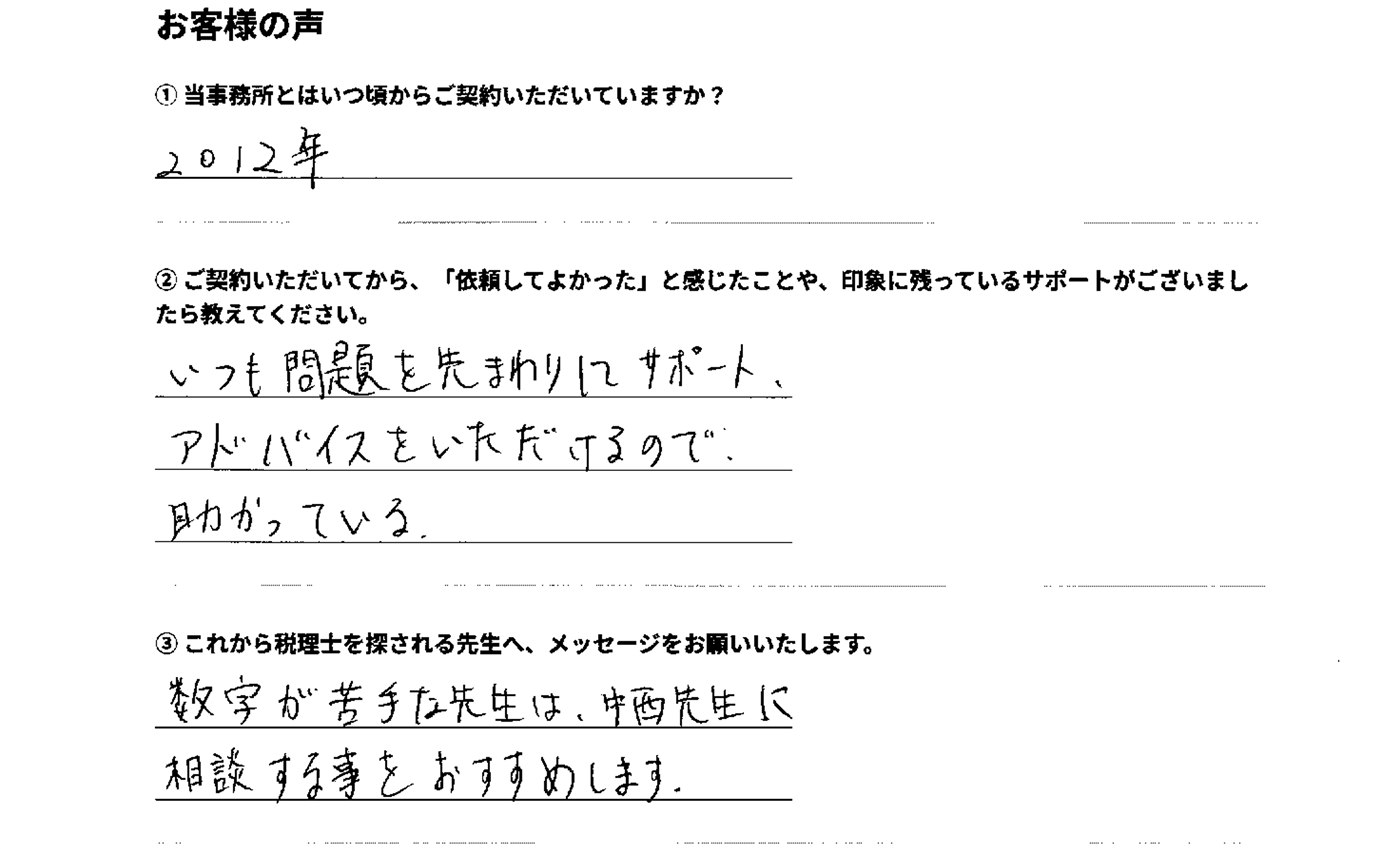 お客様の声
① 当事務所とはいつ頃からご契約いただいていますか？
2012年
② ご契約いただいてから、「依頼してよかった」と感じたことや、印象に残っているサポートがございまし
たら教えてください。
いつも問題を先まわりしてサポート、
アドバイスをいただけるので、
助かっている。
③ これから税理士を探される先生へ、メッセージをお願いいたします。
数字が苦手な先生は、中西先生に
相談する事をおすすめします。